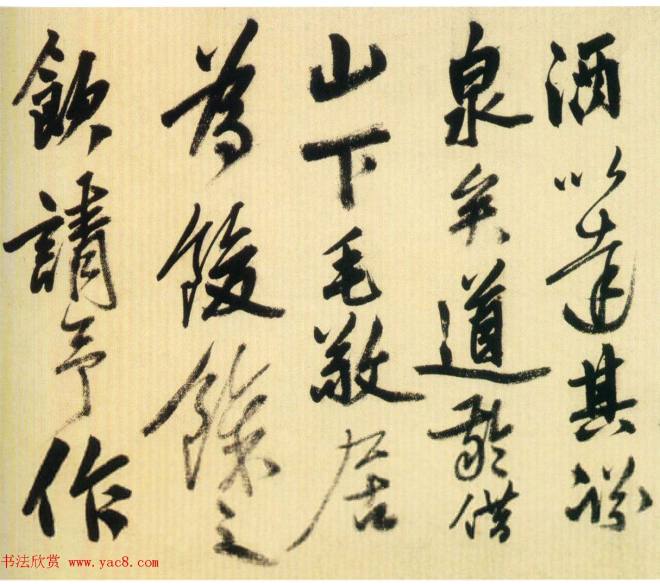 酒以達其
泉矣道借
山下毛敬居
為餕餘之
飲請予作
书法欣赏 www.yac8.com